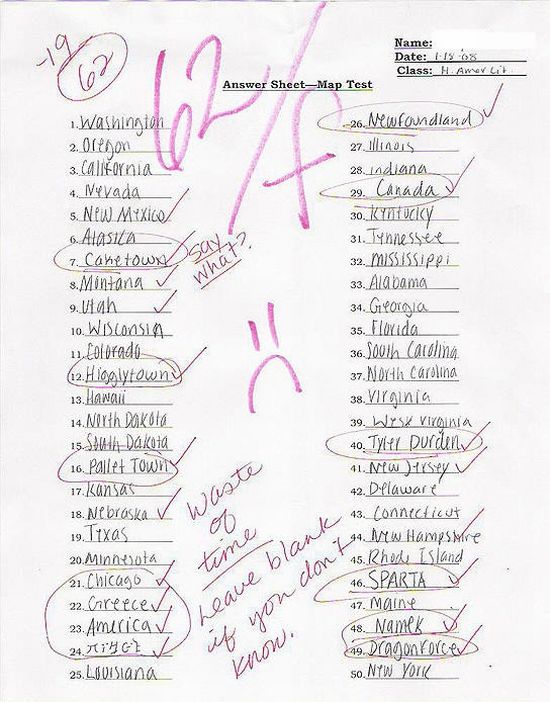 -19
62
62/F
Name:
Date: 1-18-'08
Class: H. Amer Lit.
Answer Sheet—Map Test
1. Washington
2. Oregon
3. California
4. Nevada
5. New Mexico
6. Alaska
7. Caketown
say what?
8. Montana
9. Utah
10. Wisconsin
11. Colorado
12. Higglytown
13. Hawaii
14. North Dakota
15. South Dakota
16. Pallet Town
17. Kansas
18. Nebraska
19. Texas
20. Minnesota
21. Chicago
22. Greece
23. America
24.
25. Louisiana
Waste
of
time
Leave blank
if you don't
know.
26. Newfoundland
27. Illinois
28. Indiana
29. Canada
30. Kentucky
31. Tennessee
32. Mississippi
33. Alabama
34. Georgia
35. Florida
36. South Carolina
37. North Carolina
38. Virginia
39. West Virginia
40. Tyler Durden
41. New Jersey
42. Delaware
43. Connecticut
44. New Hampshire
45. Rhode Island
46. SPARTA
47. Maine
48. Namek
49. Dragonforce
50. New York